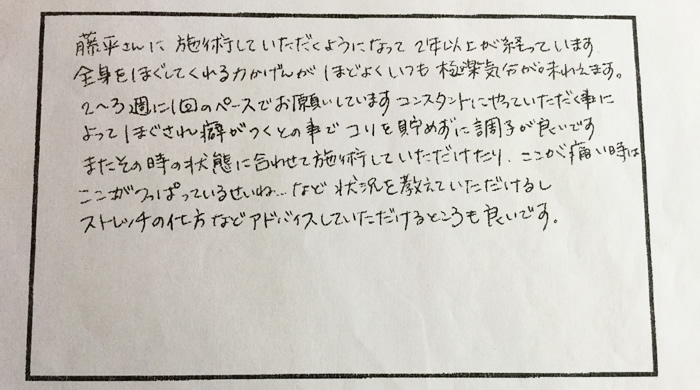 藤平さんに施術していただくようになって2年以上が経っています
全身をほぐしてくれる力かげんがほどよくいつも極楽気分が味わえます。
2〜3週に1回のペースでお願いしていますコンスタントにやっていただく事に
よってほぐされ癖がつくとの事でコリを貯めずに調子が良いです
またその時の状態に合わせて施術していただけたり、ここが痛い時は
ここがつっぱっているせいね…など状況を教えていただけるし
ストレッチの仕方などアドバイスしていただけるところも良いです。